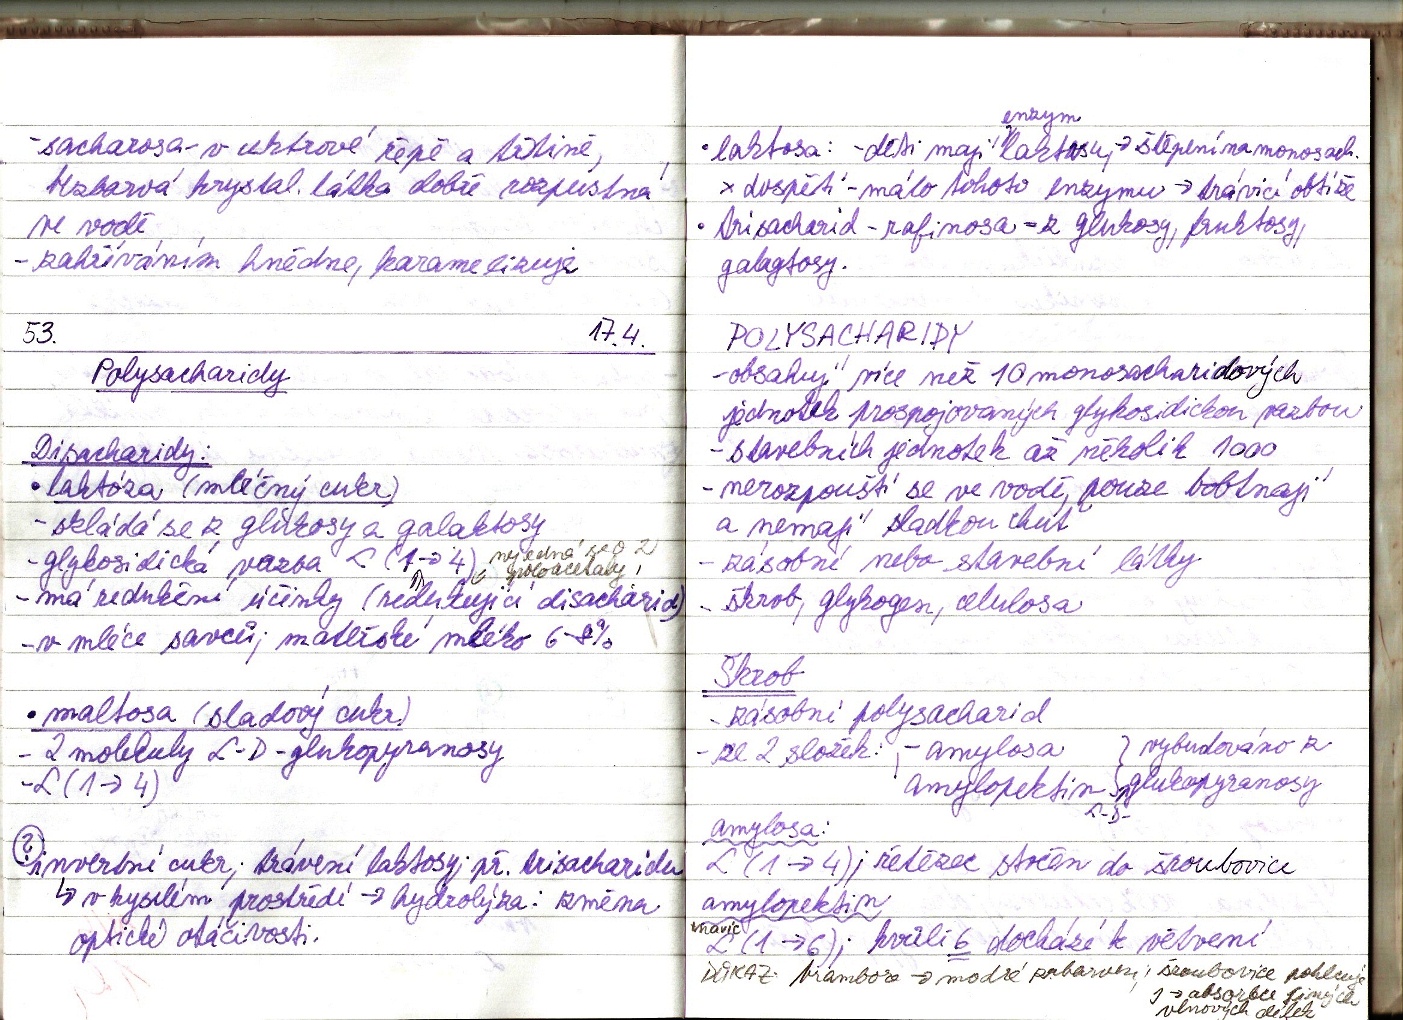 -sacharosa - v cuktrové řepě a třtině,
bezbarvá krystal. látka dobře rozpustná
ve vodě
- zahříváním hnědne, karamelizuje
53. 17.4.
Polysacharidy
Disacharidy:
• laktóza (mléčný cukr)
- skládá se z glukosy a galaktosy
- glykosidická vazba α (1→4)
nejedná se o 2
poloacetaly!
- má redukční účinky (redukující disacharid)
- v mléce savců; mateřské mléko 6-8%
• maltosa (sladový cukr)
- 2 molekuly α-D-glukopyranosy
- α (1→4)
?
invertní cukr; trávení laktosy; př. trisacharidu
↳ v kyselém prostředí → hydrolýza: změna
optické otáčivosti.
enzym
• laktosa: - děti mají laktasu, → štěpení na monosach.
x dospětí - málo tohoto enzymu → trávicí obtíže
• trisacharid - rafinosa - z glukosy, fruktosy,
galagtosy.
POLYSACHARIDY
- obsahují více než 10 monosacharidových
jednotek prospojovaných glykosidickou vazbou
- stavebních jednotek až několik 1000
- nerozpouští se ve vodě, pouze bobtnají
a nemají sladkou chuť
- zásobní nebo stavební látky
- škrob, glykogen, celulosa
Škrob
- zásobní polysacharid
- ze 2 složek: - amylosa } vybudováno z
amylopektin glukopyranosy
α-D-
amylosa:
α (1→4); řetězec stočen do šroubovice
amylopektin
navíc
α (1→6); kvůli 6 dochází k větvení
DŮKAZ: brambora → modré zabarvení; šroubovice pohlcuje
J → absorbce jiných
vlnových délek